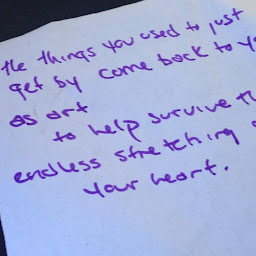 the things you used to just
get by come back to
as art
to help survive
endless stretching
your heart.